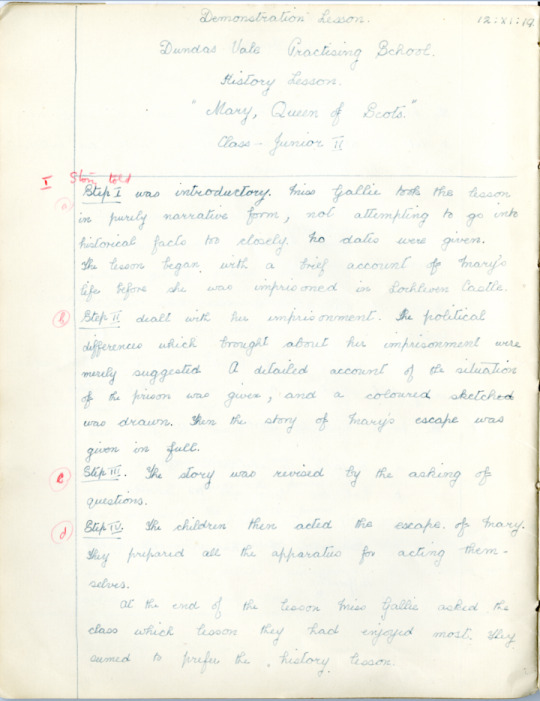 Demonstration Lesson. 12:XI:19
Dundas Vale Practising School.
History Lesson.
"Mary, Queen of Scots."
Class - Junior II
I Story told
(a) Step I was introductory. Miss Gallie took the lesson
in purely narrative form, not attempting to go into
historical facts too closely. No dates were given.
The lesson began with a brief account of Mary's
life before she was imprisoned in Lochleven Castle.
(b) Step II dealt with her imprisonment. The political
differences which brought about her imprisonment were
merely suggested A detailed account of the situation
of the prison was given, and a coloured sketched
was drawn. Then the story of Mary's escape was
given in full.
(c) Step III. The story was revised by the asking of
questions.
(d) Step IV. The children then acted the escape of Mary.
They prepared all the apparatus for acting them-
selves.
At the end of the lesson Miss Gallie asked the
class which lesson they had enjoyed most. They
seemed to prefer the history lesson.